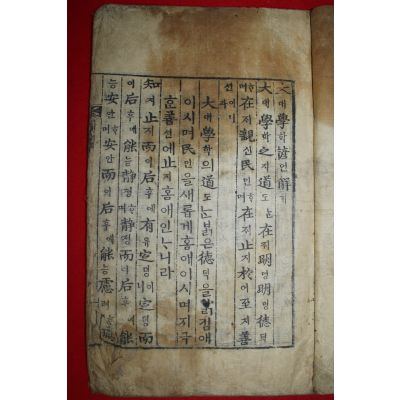 大대學학諺언解ᄒᆡ
大대學학之지道도ᄂᆞᆫ在ᄌᆡ明명明명德덕ᄒᆞ
며在ᄌᆡ親신民민ᄒᆞ며在ᄌᆡ止지於어至지善
션이니라
大대學학의道도ᄂᆞᆫ붉은德덕을ᄇᆞᆯ킴애
이시며民민을새롭게홈애이시며지극
ᄒᆞᆫ善션에止지홈애인ᄂᆞ니라
知지止지而이后후에有유定뎡이니定뎡而
이后후에能능靜졍ᄒᆞ며靜졍而이后후에能
능安안ᄒᆞ며安안而이后후에能능慮려ᄒᆞ